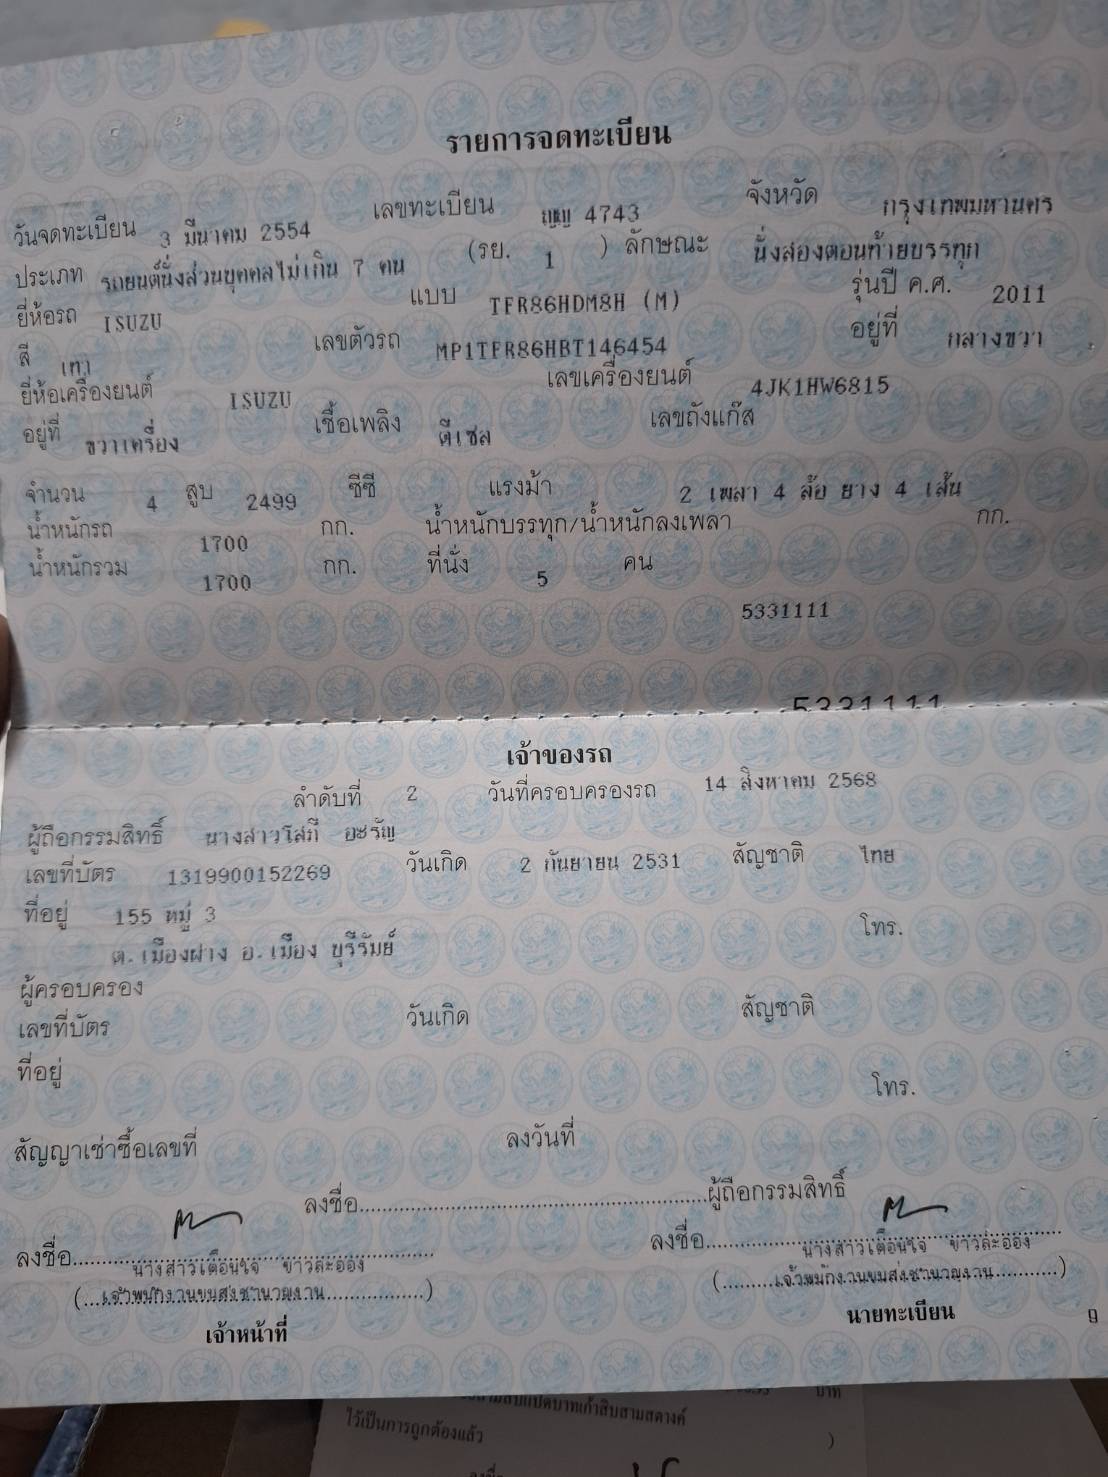 รายการจดทะเบียน
วันจดทะเบียน 3 มีนาคม 2554 เลขทะเบียน ญญ 4743 จังหวัด กรุงเทพมหานคร
ประเภท รถยนต์นั่งส่วนบุคคลไม่เกิน 7 คน (รย. 1 ) ลักษณะ นั่งสองตอนท้ายบรรทุก
ยี่ห้อรถ ISUZU แบบ TFR86HDM8H (M) รุ่นปี ค.ศ. 2011
สี เทา เลขตัวรถ MP1TFR86HBT146454 อยู่ที่ กลางขวา
ยี่ห้อเครื่องยนต์ ISUZU เลขเครื่องยนต์ 4JK1HW6815
อยู่ที่ ขวาเครื่อง เชื้อเพลิง ดีเซล เลขถังแก๊ส
จำนวน 4 สูบ 2499 ซีซี แรงม้า 2 เพลา 4 ล้อ ยาง 4 เส้น
น้ำหนักรถ 1700 กก. น้ำหนักบรรทุก/น้ำหนักลงเพลา กก.
น้ำหนักรวม 1700 กก. ที่นั่ง 5 คน
5331111
5331111
เจ้าของรถ
ลำดับที่ 2 วันที่ครอบครองรถ 14 สิงหาคม 2568
ผู้ถือกรรมสิทธิ์ นางสาวโสภี อะรัญ
เลขที่บัตร 1319900152269 วันเกิด 2 กันยายน 2531 สัญชาติ ไทย
ที่อยู่ 155 หมู่ 3
ต.เมืองฝาง อ.เมือง บุรีรัมย์ โทร.
ผู้ครอบครอง
เลขที่บัตร วันเกิด สัญชาติ
ที่อยู่ โทร.
สัญญาเช่าซื้อเลขที่ ลงวันที่
ลงชื่อ.....................................................ผู้ถือกรรมสิทธิ์
ลงชื่อ นางสาวเตือนใจ ขาวละออง ลงชื่อ นางสาวเตือนใจ ขาวละออง
(...เจ้าพนักงานขนส่งชำนาญงาน...) (...เจ้าพนักงานขนส่งชำนาญงาน...)
เจ้าหน้าที่ นายทะเบียน
9
บาท
ไว้เป็นการถูกต้องแล้ว )